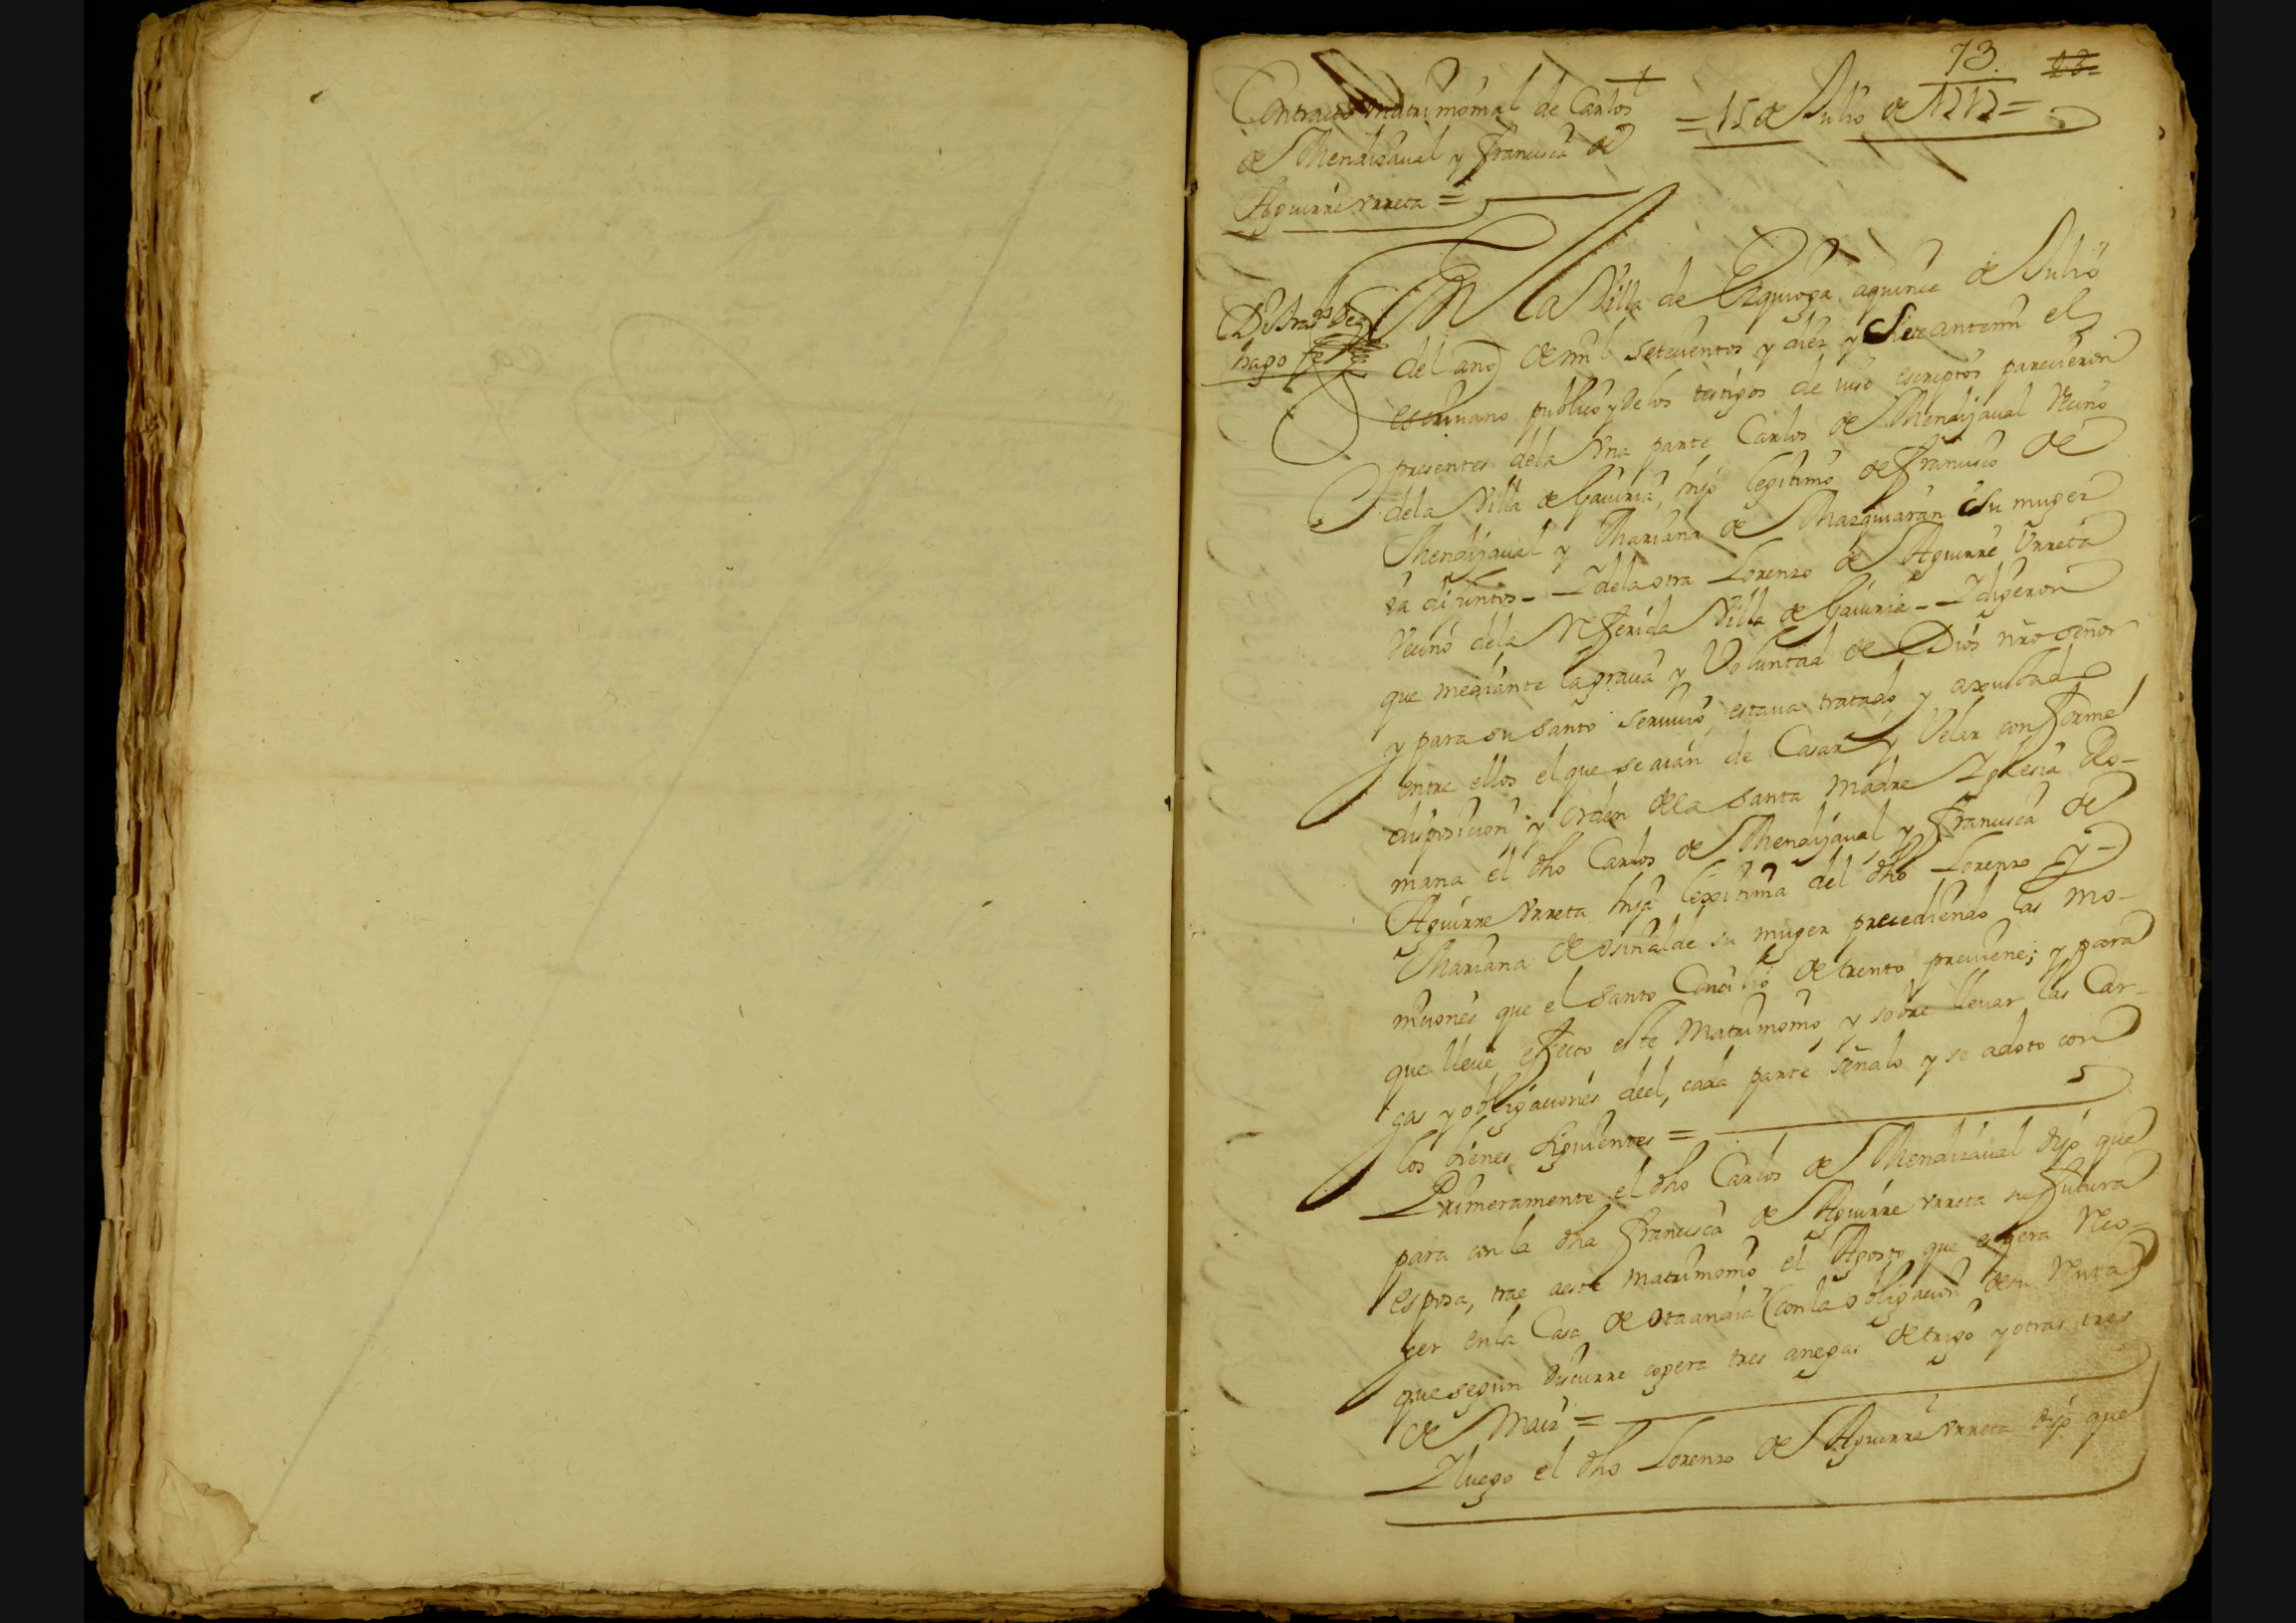 73. 23
Contracto matrimonial de Carlos
= 15 de Julio de 1717 =
de Mendizaual y Francisca de
Aguirre vrreta =
Di trasdo Dea
hago fe
En la Villa de Ezquioga aquince de Julio
del año de mil setecientos y diez y siete antemi el
escriuano publico y delos testigos de iuso escriptos parecieron
presentes dela Vna parte Carlos de Mendijaual Vecino
dela Villa de Gauiria, hijo legitimo de Francisco de
Mendijaual y Mariana de Mazquiaran su muger
ia difuntos - Y dela otra Lorenzo de Aguirre Vrreta
Vecino dela Referida Villa de Gauiria - Y digeron
que mediante la gracia y Voluntad de Dios nro señor
y para su santo seruicio, estaua tratado y axustado
entre ellos el que se aian de Casar y Velar conforme
disposicion y orden dela santa Madre Yglesia Ro-
mana el dho Carlos de Mendijaual y Francisca de
Aguirre Vrreta hija lexitima del dho Lorenzo y -
Mariana de osinalde su muger precediendo las mo-
niciones que el santo Concilio de trento preuiene; y para
que lleue effecto este Matrimonio, y sobre lleuar las Car-
gas y obligaciones deel, cada parte señalo y se adoto con
los bienes siguientes =
Primeramente el dho Carlos de Mendizaual dijo que
para con la dha Francisca de Aguirre vrreta su futura
esposa, trae aeste matrimonio el Agosto que espera Reco-
ger enla Casa de otaandia (con la obligacion de su Renta)
que segun discurre espera tres anegas de trigo y otras tres
de Maiz =
Y luego el dho Lorenzo de Aguirre vrreta dijo que